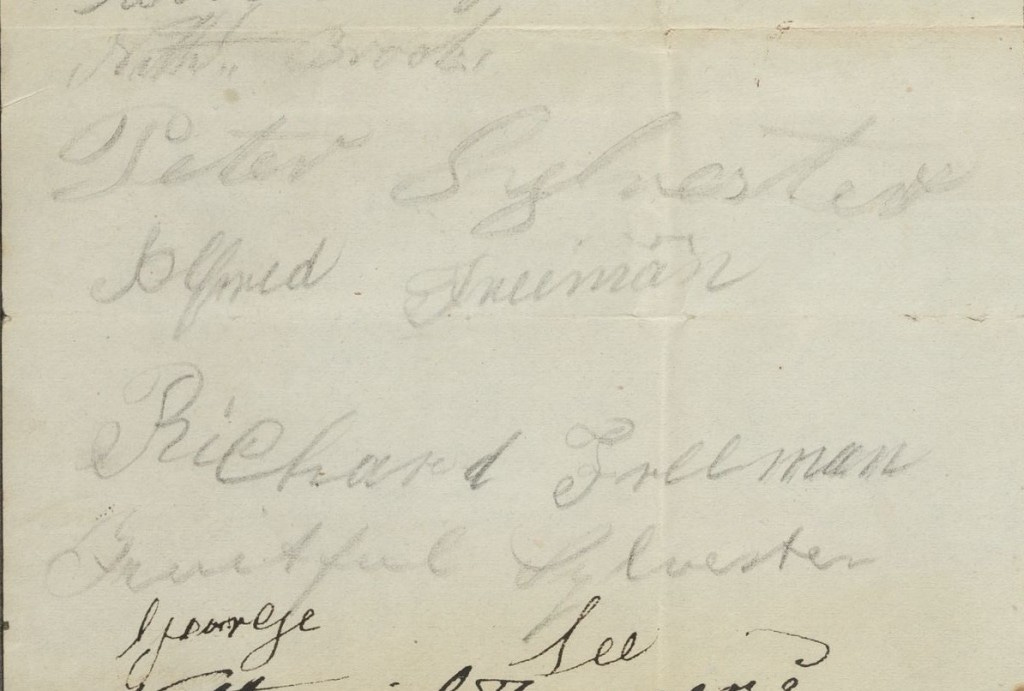 Nathl. Brooks
Peter Sylvester
Alfred Freeman
Richard Freeman
Fruitful Sylvester
George Lee